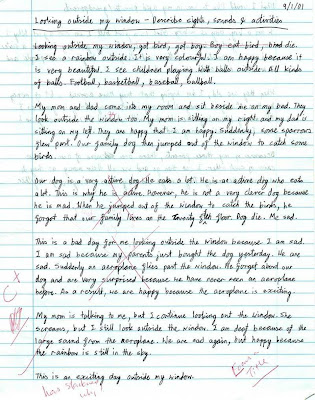 Looking outside my window - Describe sights, sounds & activities
9/1/01
Looking outside my window, got bird, got boy. Boy eat bird, bird die.
I see a rainbow outside. It is very colourful. I am happy because it
is very beautiful. I see children playing with balls outside. All kinds
of balls. Football, basketball, baseball, ballball.
My mom and dad come into my room and sit beside me on my bed. They
look outside the window too. My mom is sitting on my right and my dad is
sitting on my left. They are happy that I am happy. Suddenly, some sparrows
flew past. Our family dog then jumped out of the window to catch some
birds.
Our dog is a very active dog. He eats a lot. He is an active dog who eats
a lot. This is why he is active. However, he is not a very clever dog because
he is mad. When he jumped out of the window to catch the birds, he
forgot that our family lives on the Twenty 5th floor. Dog die. Me sad.
This is a bad day for me looking outside the window because I am sad.
I am sad because my parents just bought the dog yesterday. We are
sad. Suddenly an aeroplane flies past the window. We forget about our
dog and are very surprised because we have never seen an aeroplane
before. As a result, we are happy because the aeroplane is exciting.
My mom is talking to me, but I continue looking out the window. She
screams, but I still look outside the window. I am deaf because of the
large sound from the aeroplane. We are sad again, but happy because
the rainbow is still in the sky.
This is an exciting day outside my window.
C+